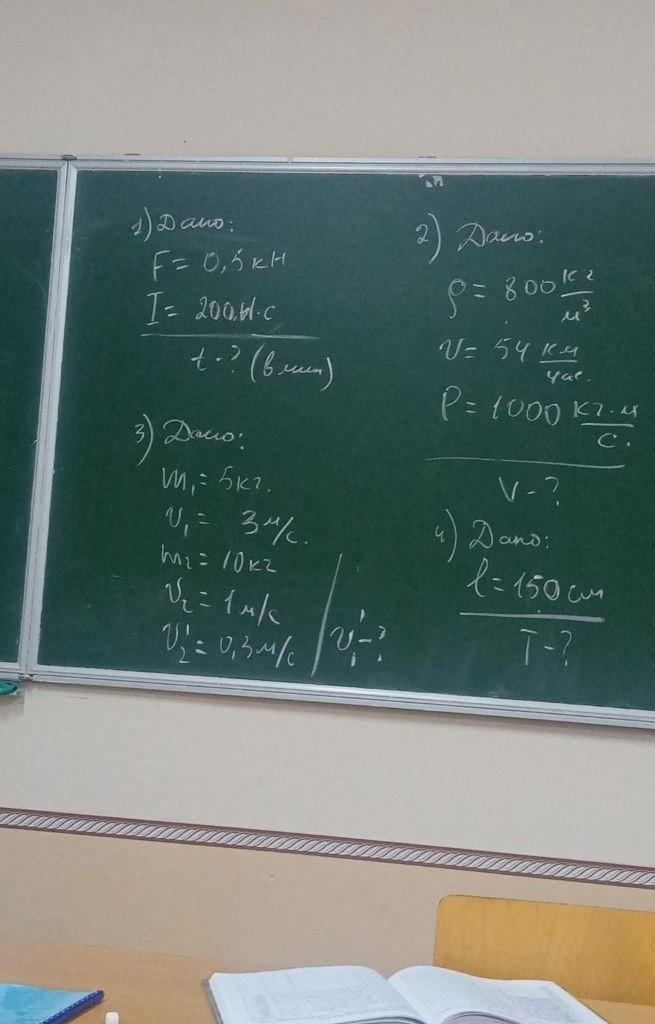 1) Дано:
F = 0,5 кН
I = 200 Н·с
t - ? (в мин)
2) Дано:
ρ = 800 кг/м³
v = 54 км/час.
P = 1000 кг·м/с.
V - ?
3) Дано:
m₁ = 5 кг.
v₁ = 3 м/с.
m₂ = 10 кг
v₂ = 1 м/с
v₂' = 0,3 м/с
v₁' - ?
4) Дано:
l = 150 см
T - ?